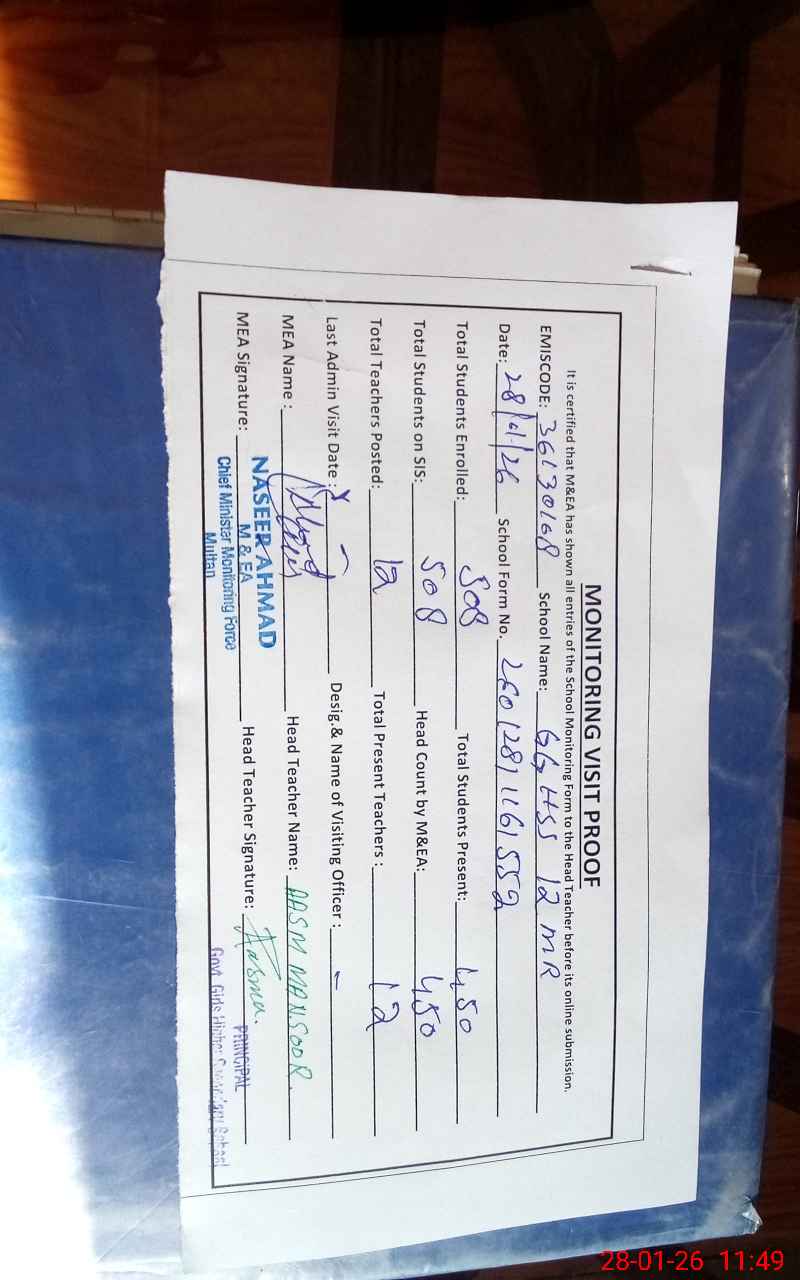 MONITORING VISIT PROOF
It is certified that M&EA has shown all entries of the School Monitoring Form to the Head Teacher before its online submission.
EMISCODE: 36130168 School Name: GG HSS 12 MR
Date: 28/01/26 School Form No. 2601281161552
Total Students Enrolled: 508 Total Students Present: 450
Total Students on SIS: 508 Head Count by M&EA: 450
Total Teachers Posted: 12 Total Present Teachers : 12
Last Admin Visit Date : - Desig.& Name of Visiting Officer : -
MEA Name : Head Teacher Name: AASM MANSOOR.
MEA Signature: Head Teacher Signature: Aasma.
NASEER AHMAD
M & EA
Chief Minister Monitoring Force
Multan
PRINCIPAL
Govt. Girls Higher Secondary School
28-01-26 11:49